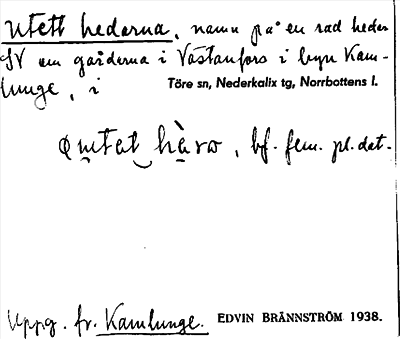 Utett hederna, namn på en rad hedar
SV om gårderna i Västanfors i byn Kam-
lunge, i Töre sn, Nederkalix tg, Norrbottens l.
bf. fem. pl. dat.
Uppg. fr. Kamlunge. EDVIN BRÄNNSTRÖM 1938.